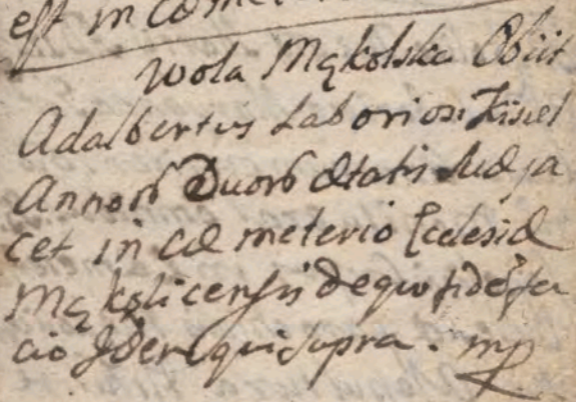 est in cæme
Wola Mąkolska Obiit
Adalbertus Laboriosi Kisiel
Annorū Duorū ætatis suæ ja
cet in cæmeterio Ecclesiæ
Mąkolicensis de quo fidē fa
cio Idem qui supra. mp